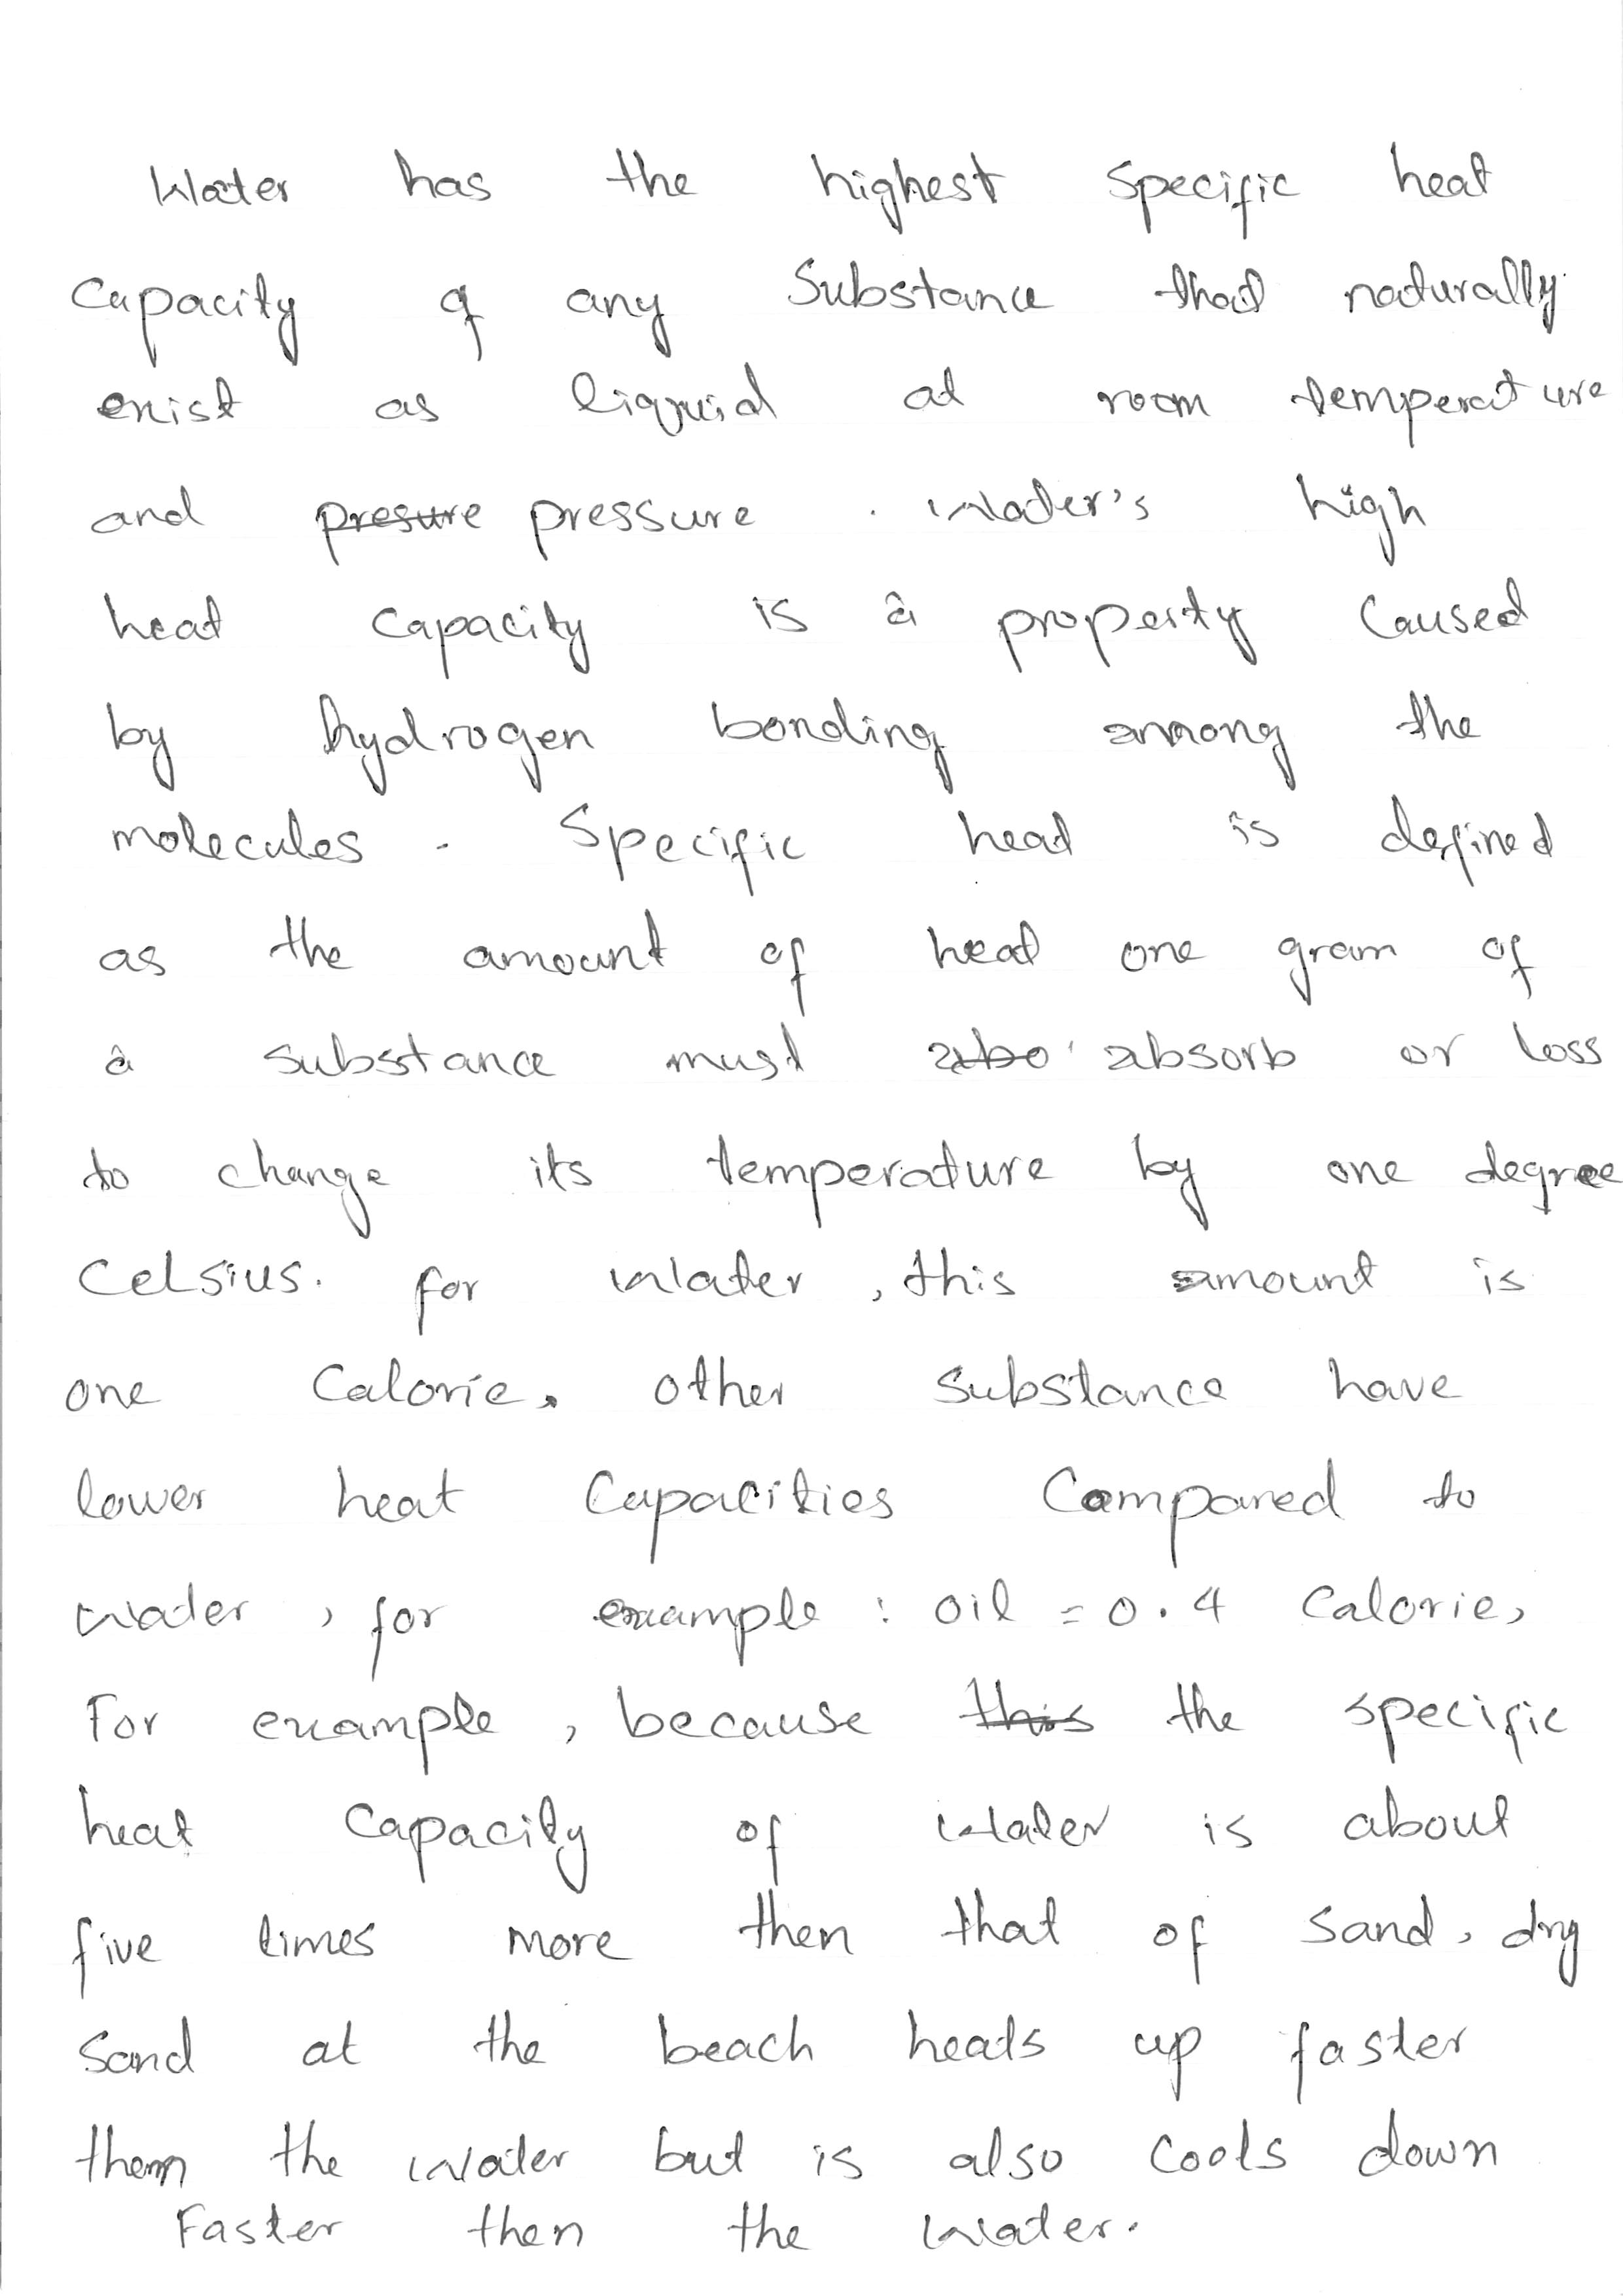 Water has the highest specific heat
Capacity of any Substance that naturally
exist as liquid at room temperature
and presure pressure . Water's high
heat Capacity is a property Caused
by hydrogen bonding among the
molecules . Specific heat is defined
as the amount of heat one gram of
a substance must abo absorb or loss
to change its temperature by one degree
Celsius. for water , this amount is
one Calorie. other substance have
lower heat Capacities Compared to
water , for example : oil = 0.4 Calorie,
For example , because this the specific
heat Capacity of Water is about
five times more then that of sand, dry
sand at the beach heats up faster
then the water but is also cools down
Faster then the water.